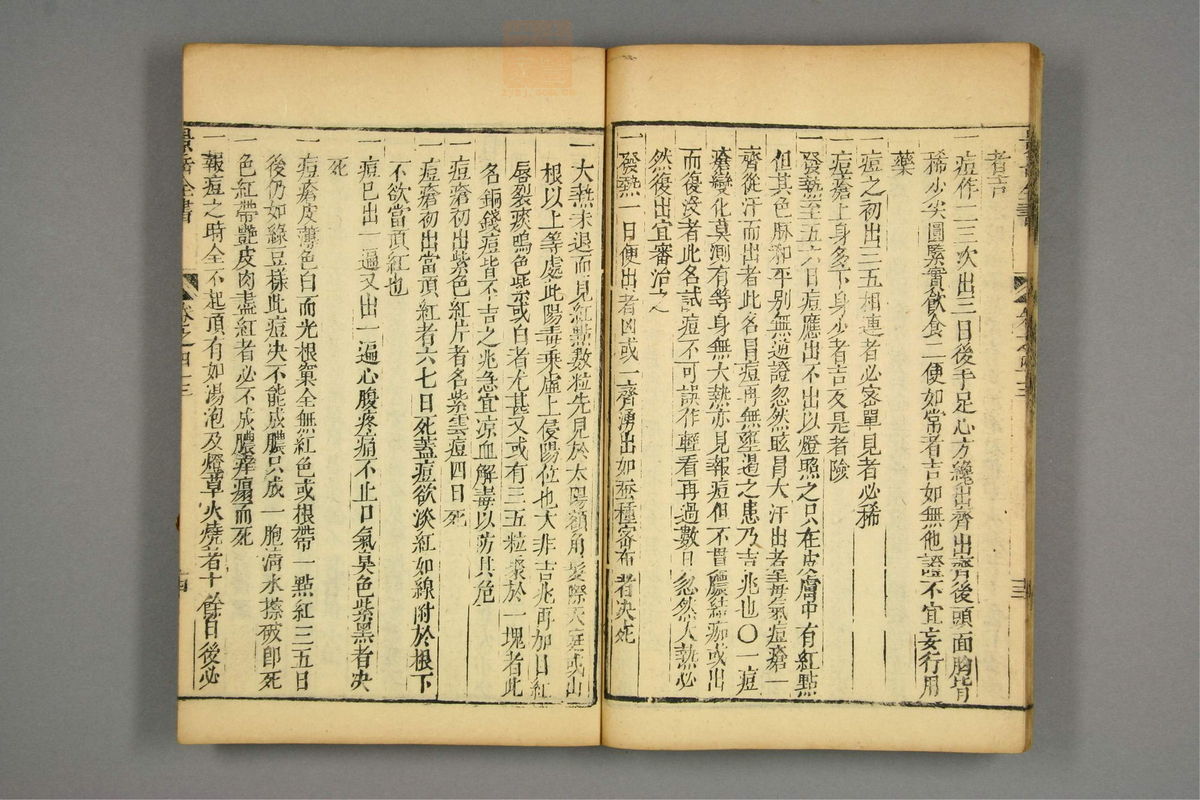 者吉
一痘作二三次出三日後手足心方纔出齊出齊後頭面胸背
稀少尖圓緊實飲食二便如常者吉如無他證不宜妄行用
藥
一痘之初出三五相連者必密單見者必稀
一痘瘡上身多下身少者吉反是者險
一發熱至五六日痘應出不出以燈照之只在皮膚中有紅點
但其色脉和平別無逆證忽然眩冒大汗出者毒氣痘瘡一
齊從汗而出者此名冒痘再無壅遏之患乃吉兆也〇一痘
瘡變化莫測有等身無大熱亦見報痘但不貫膿結痂或出
而復沒者此名試痘不可誤作輕看再過數日忽然大熱必
然後出宜審治之
一發熱一日便出者凶或一齊湧出如蚕種密布者决死
一大熱未退而見紅點數粒先見於太陽額角髮際天庭或山
根以上等處此陽毒乘虛上侵陽位也大非吉兆再加口紅
唇裂痰鳴色紫或白者尤甚又或有三五粒聚於一塊者此
名銅錢痘皆不吉之兆急宜凉血解毒以防其危
一痘瘡初出紫色紅片者名紫雲痘四日死
一痘瘡初出當頂紅者六七日死蓋痘欲淡紅如線附於根下
不欲當頂紅也
一痘已出一遍又出一遍心腹疼痛不止口氣臭色紫黑者决
死
一痘瘡皮薄色白而光根窠全無紅色或根帶一點紅三五日
後仍如綠豆樣此痘决不能成膿只成一胞淸水擦破即死
一色紅帶艷皮肉盡紅者必不成膿癢塌而死
一報痘之時全不起頂有如湯泡及燈草火燒者十餘日後必
景岳全書
卷之四十三